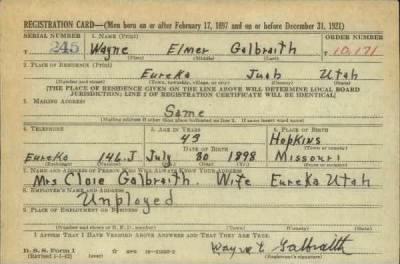 REGISTRATION CARD—(Men born on or after February 17, 1897 and on or before December 31, 1921)
SERIAL NUMBER 1. NAME (Print) ORDER NUMBER
T 245 Wayne Elmer Galbraith T10,171
(First) (Middle) (Last)
2. PLACE OF RESIDENCE (Print)
Eureka Juab Utah
(Number and street) (Town, township, village, or city) (County) (State)
[THE PLACE OF RESIDENCE GIVEN ON THE LINE ABOVE WILL DETERMINE LOCAL BOARD
JURISDICTION; LINE 2 OF REGISTRATION CERTIFICATE WILL BE IDENTICAL]
3. MAILING ADDRESS
Same
[Mailing address if other than place indicated on line 2. If same insert word same]
4. TELEPHONE 5. AGE IN YEARS 6. PLACE OF BIRTH
43 Hopkins
DATE OF BIRTH (Town or county)
Eureka 146.J July 30 1898 Missouri
(Exchange) (Number) (Mo.) (Day) (Yr.) (State or country)
7. NAME AND ADDRESS OF PERSON WHO WILL ALWAYS KNOW YOUR ADDRESS
Mrs Cloie Galbraith. Wife Eureka Utah
8. EMPLOYER'S NAME AND ADDRESS
Unployed
9. PLACE OF EMPLOYMENT OR BUSINESS
(Number and street or R. F. D. number) (Town) (County) (State)
I AFFIRM THAT I HAVE VERIFIED ABOVE ANSWERS AND THAT THEY ARE TRUE.
D. S. S. Form 1 Wayne E Galbraith
(Revised 1-1-42) (Registrant's signature)